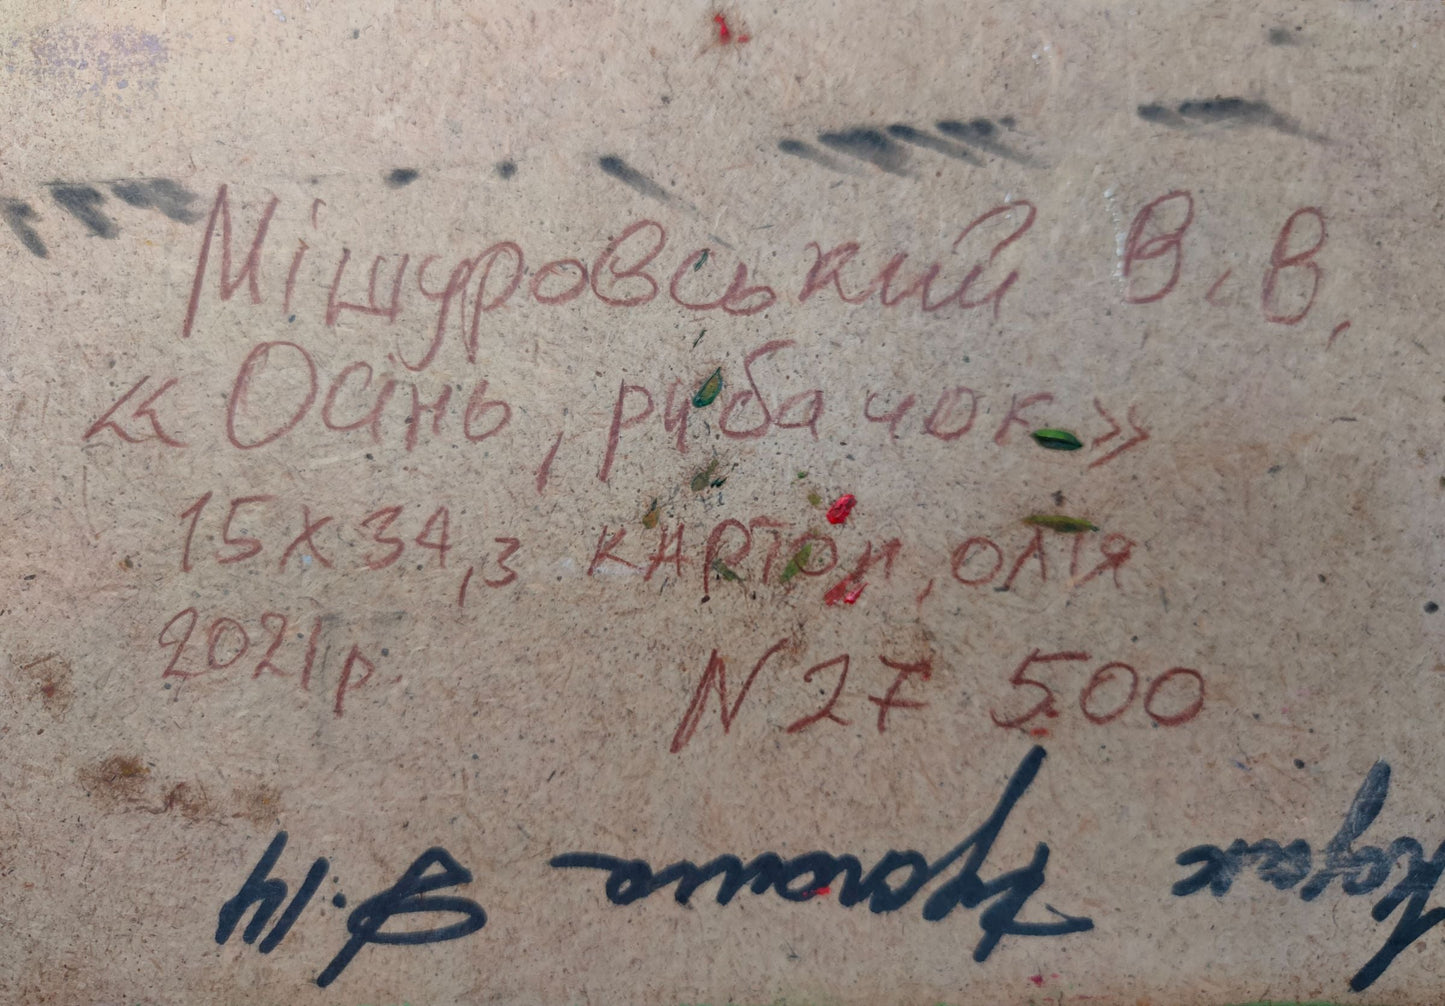 Мішуровський В. В.
«Осінь, рибачок»
15х34,3 картон, олія
2021р. N 27 500